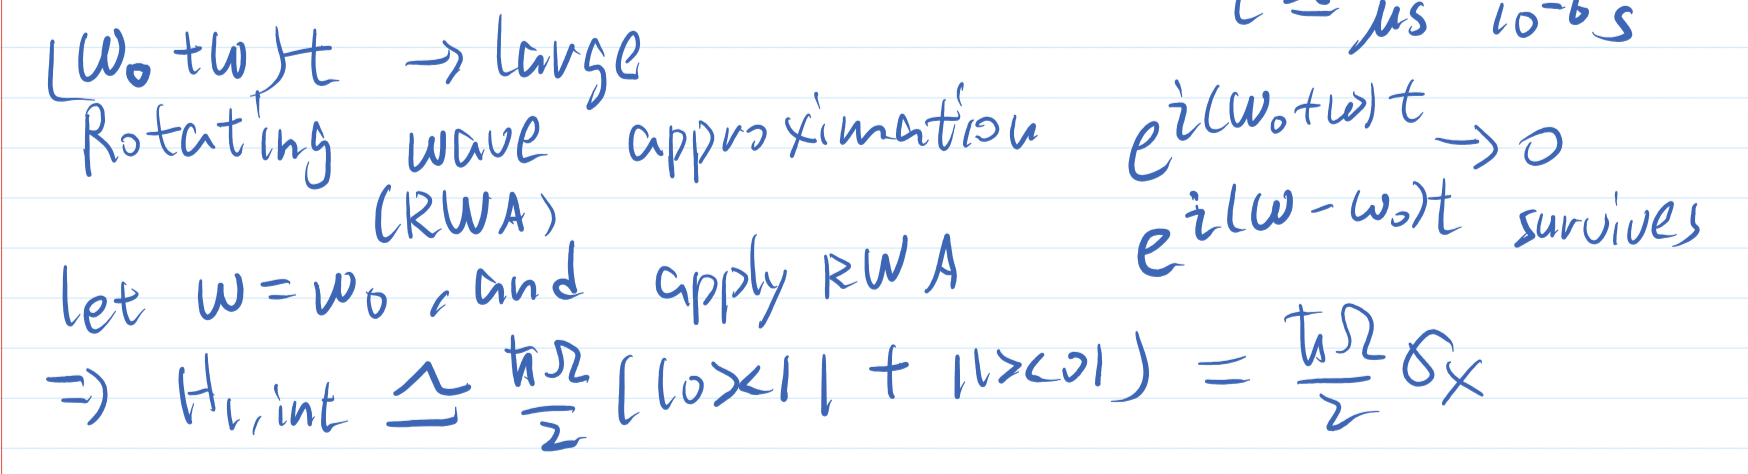 t ≃ μs 10⁻⁶ s
(ω₀ + ω)t → large
Rotating wave approximation e^{i(ω₀+ω)t} → 0
(RWA) e^{i(ω-ω₀)t} survives
let ω = ω₀, and apply RWA
⇒ H₁,int ≃ ħΩ/2 (|0><1| + |1><0|) = ħΩ/2 σₓ